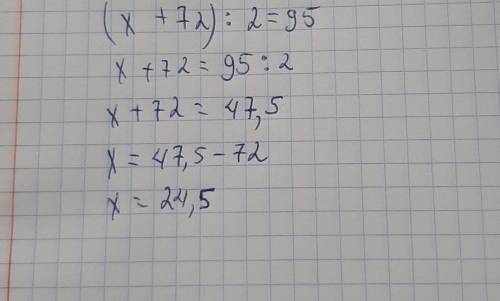 (x + 72) : 2 = 95
x + 72 = 95 : 2
x + 72 = 47,5
x = 47,5 - 72
x = 24,5